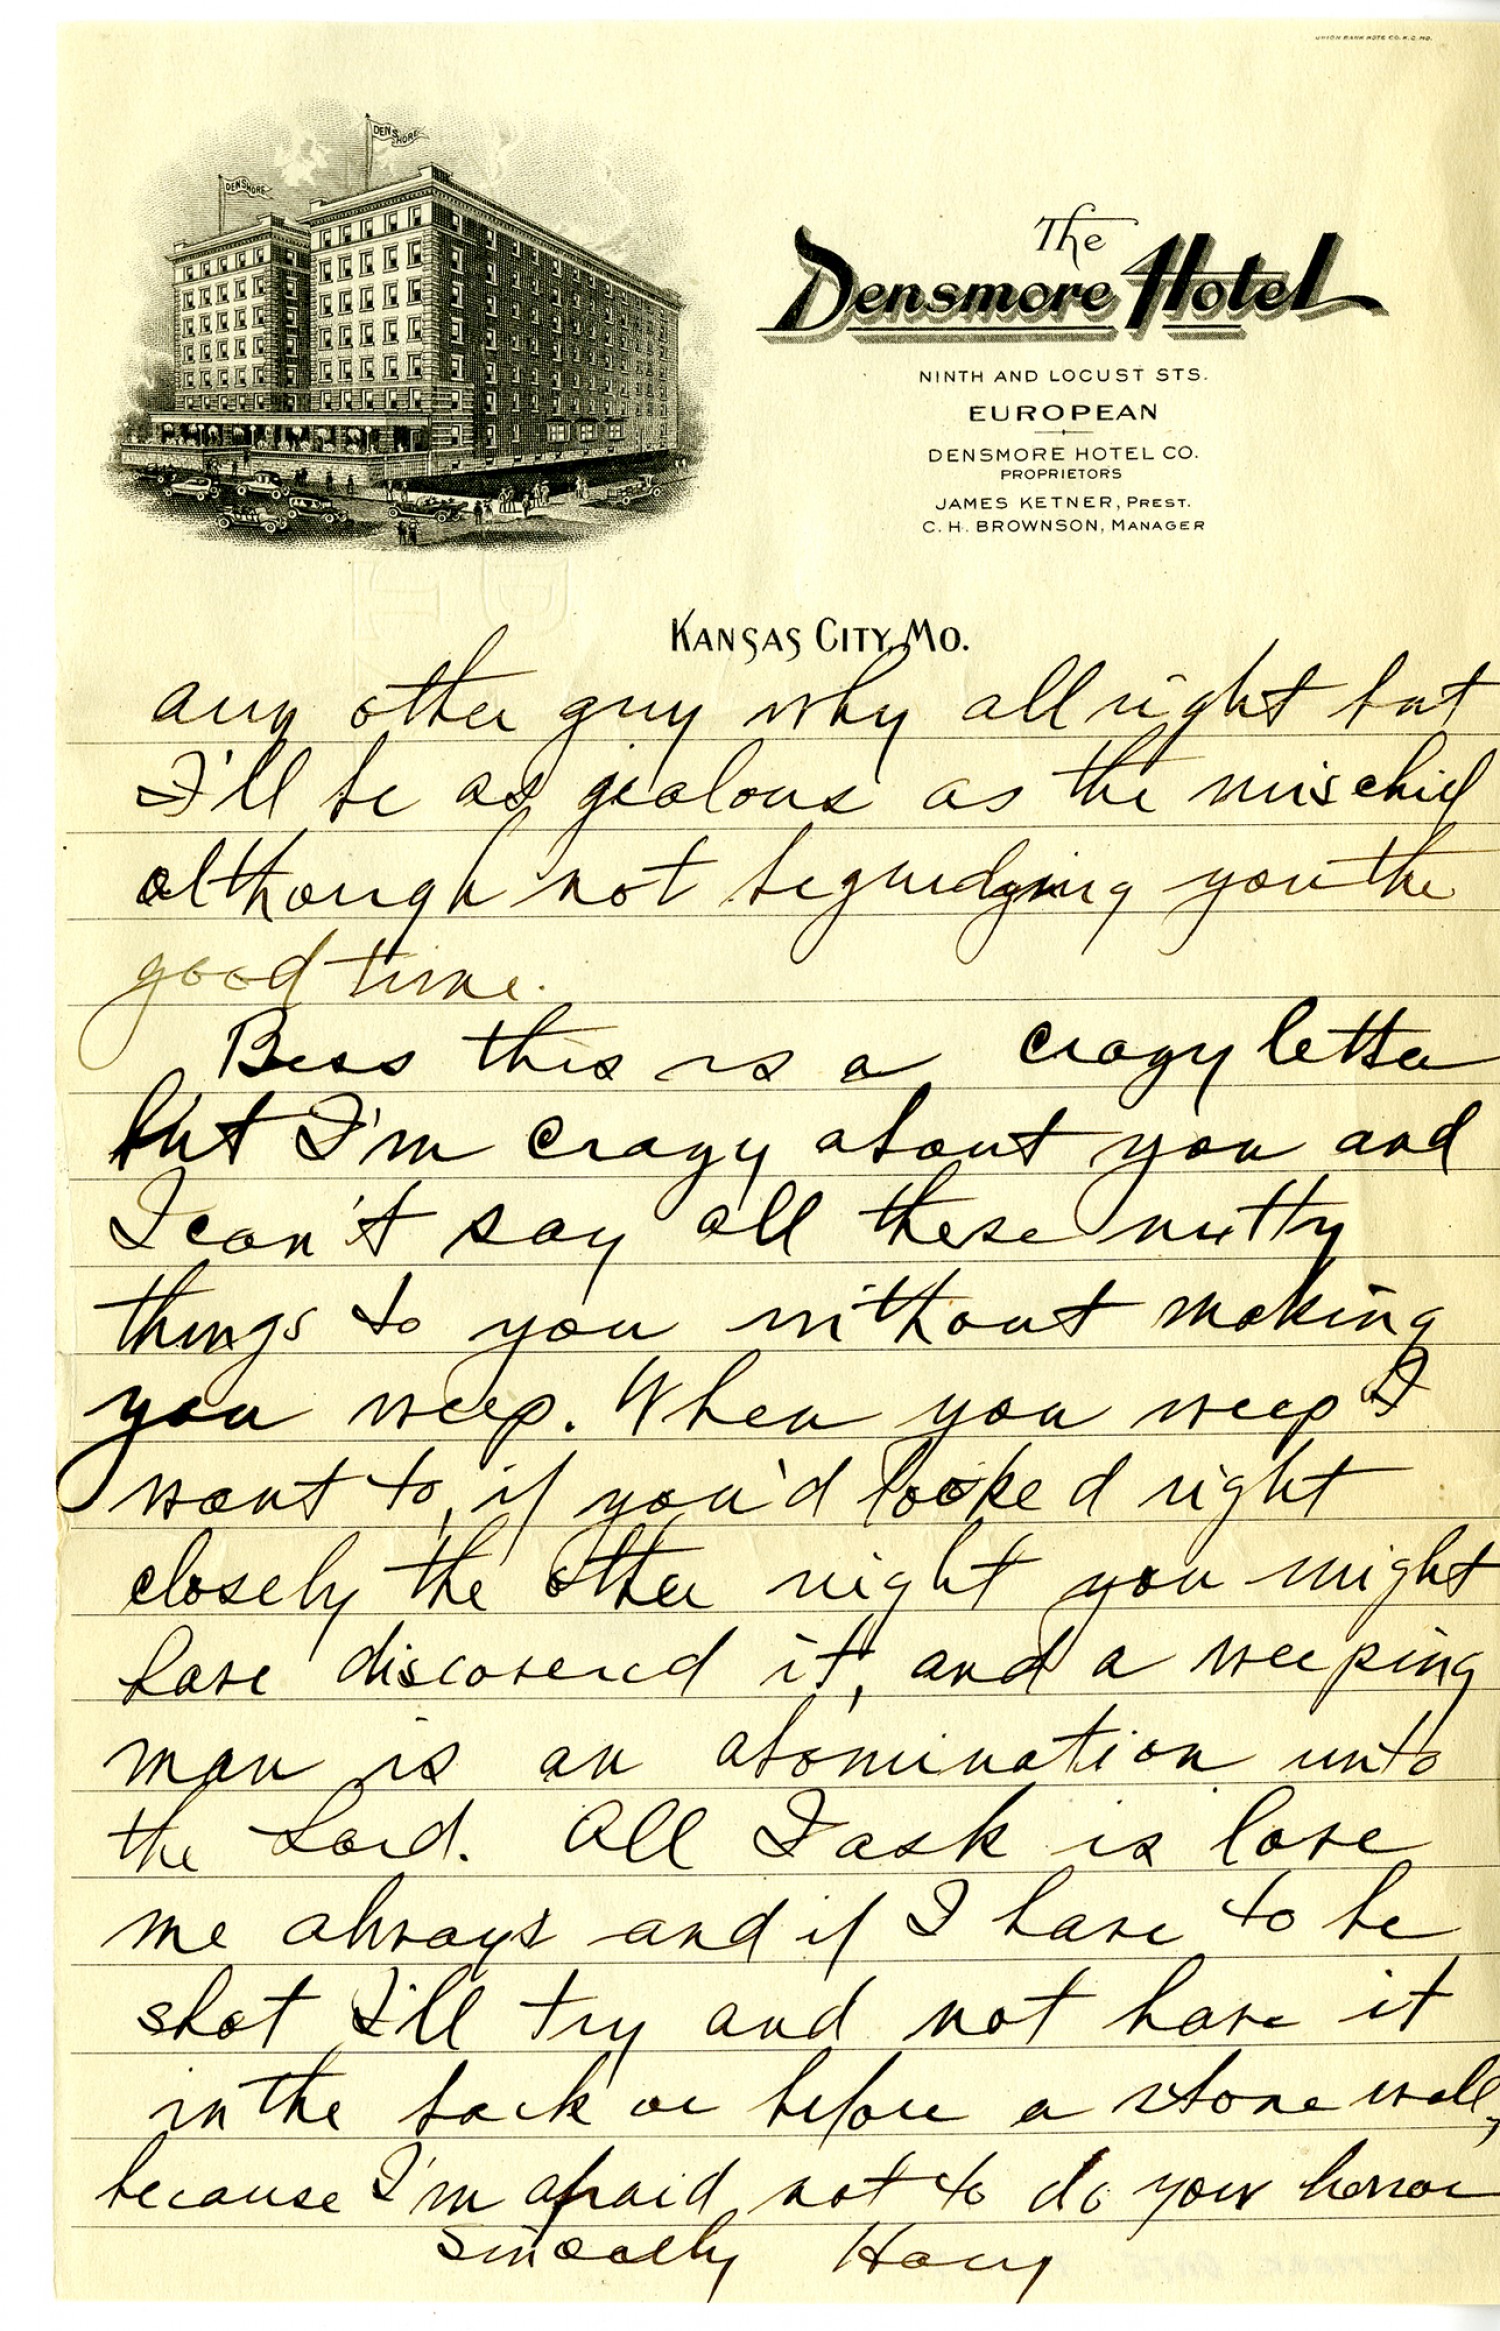 UNION BANK NOTE CO. K.C. MO.
DENSMORE
DENSMORE
The
Densmore Hotel
NINTH AND LOCUST STS.
EUROPEAN
DENSMORE HOTEL CO.
PROPRIETORS
JAMES KETNER, PREST.
C. H. BROWNSON, MANAGER
KANSAS CITY, MO.
any other guy why all right but
I'll be as jealous as the mischief
although not begrudging you the
good time.
Bess this is a crazy letter
but I'm crazy about you and
I can't say all these nutty
things to you without making
you weep. When you weep I
want to, if you'd looked right
closely the other night you might
have discovered it, and a weeping
man is an abomination unto
the Lord. All I ask is love
me always and if I have to be
shot I'll try and not have it
in the back or before a stone wall,
because I'm afraid not to do you honor
Sincerely Harry